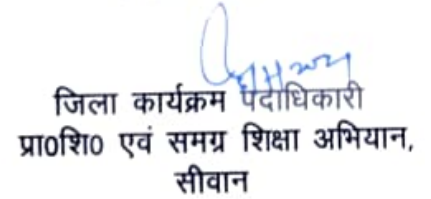 जिला कार्यक्रम पदाधिकारी
प्रा0शि0 एवं समग्र शिक्षा अभियान,
सीवान